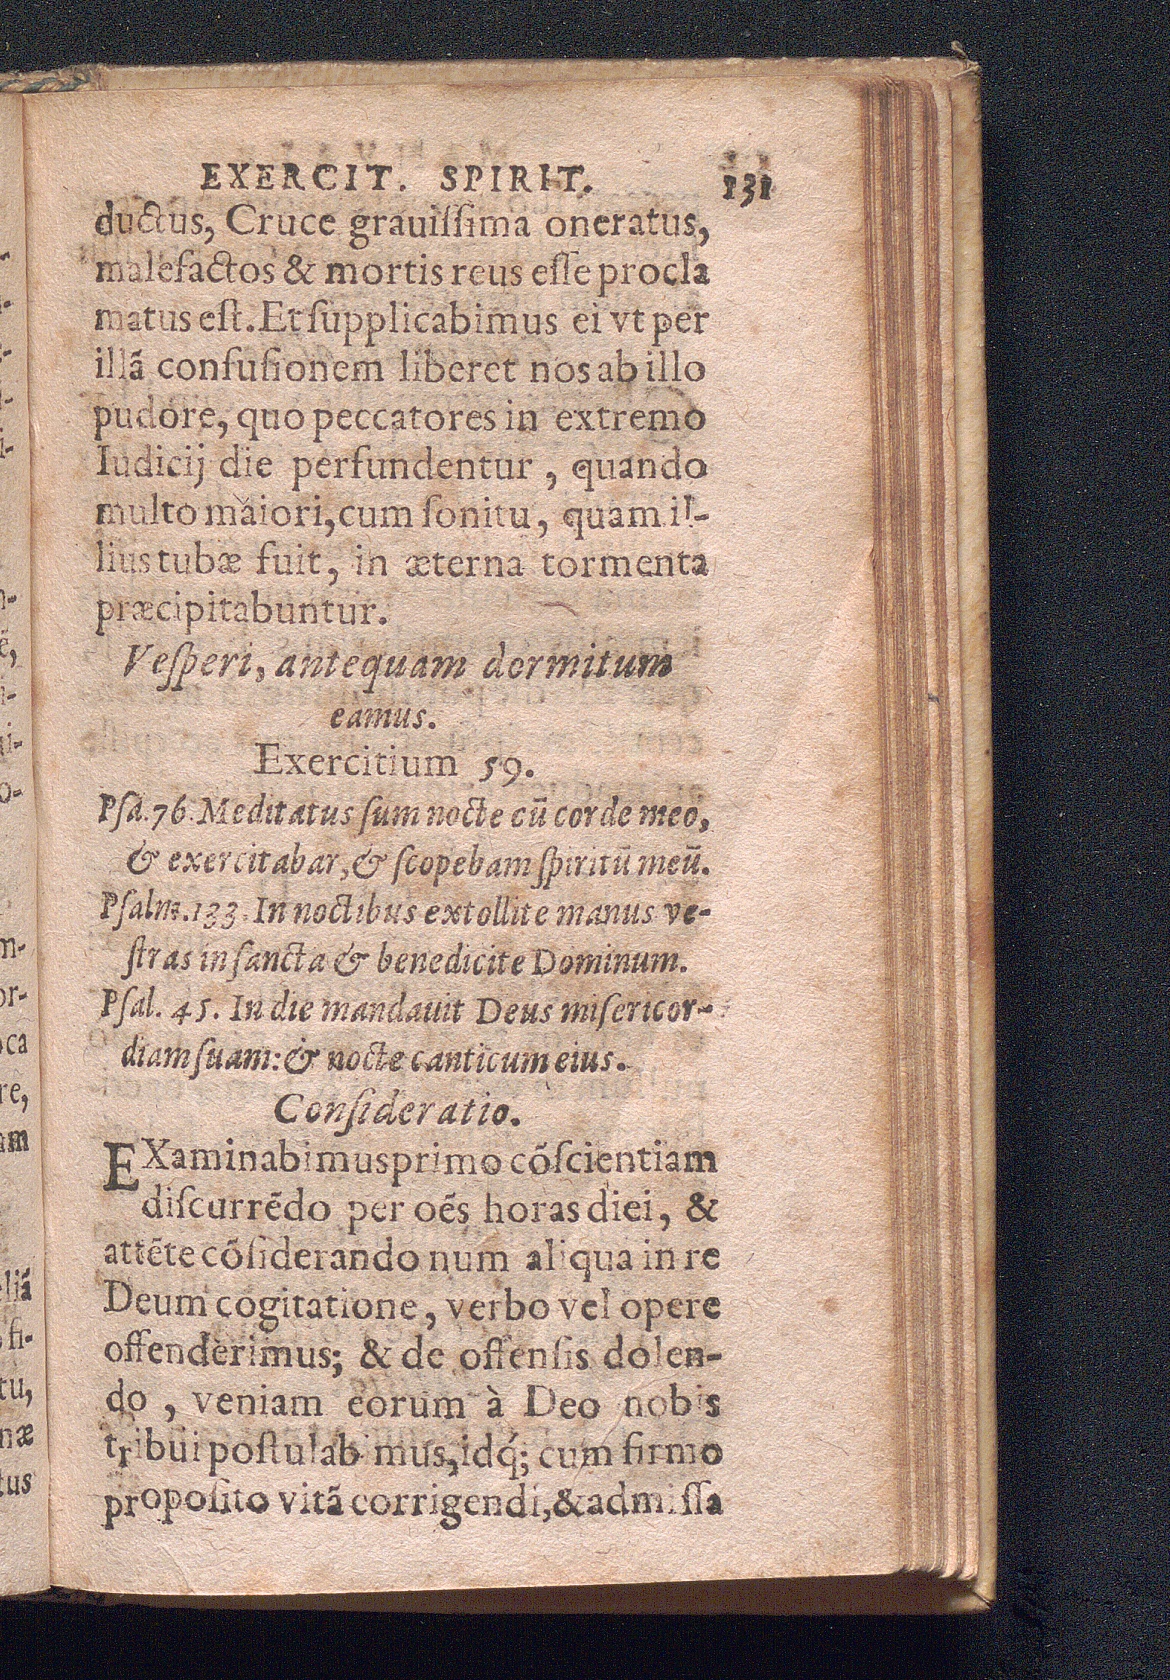 EXERCIT. SPIRIT. 131
ductus, Cruce grauiſſima oneratus,
malefactos & mortis reus eſſe procla
matus eſt. Et ſupplicabimus ei vt per
illã confuſionem liberet nos ab illo
pudore, quo peccatores in extremo
Iudicij die perfundentur, quando
multo maiori, cum ſonitu, quam il-
lius tubæ fuit, in æterna tormenta
præcipitabuntur.
Veſperi, antequam dormitum
eamus.
Exercitium 59.
Pſa. 76. Meditatus ſum nocte cũ corde meo,
& exercitabar, & ſcopebam ſpiritũ meũ.
Pſalm. 133. In noctibus extollite manus ve-
ſtras in ſancta & benedicite Dominum.
Pſal. 45. In die mandauit Deus miſericor-
diam ſuam: & nocte canticum eius.
Conſideratio.
EXaminabimus primo cõſcientiam
diſcurrẽdo per oẽs horas diei, &
attẽte cõſiderando num aliqua in re
Deum cogitatione, verbo vel opere
offenderimus; & de offenſis dolen-
do, veniam eorum à Deo nobis
tribui poſtulabimus, idq́; cum firmo
propoſito vitã corrigendi, & admiſſa